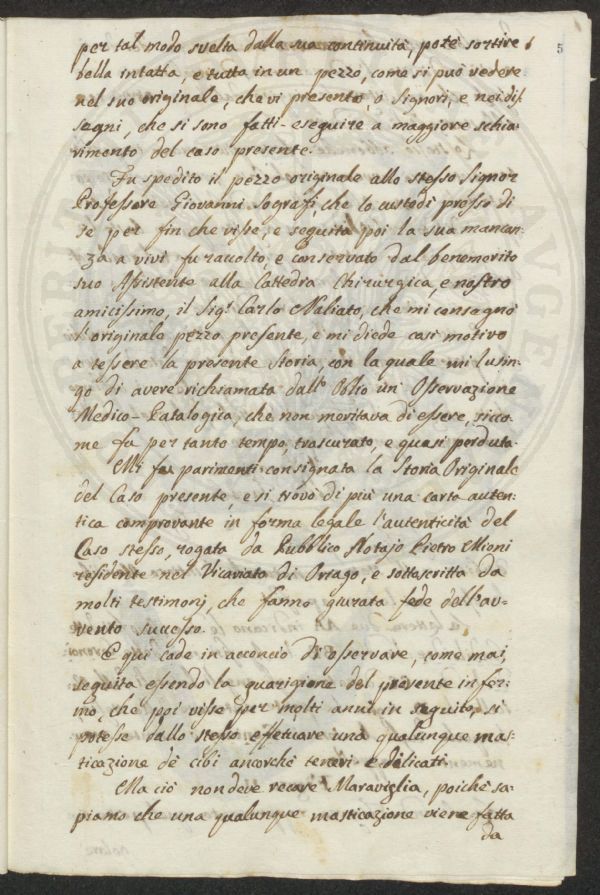 5
per tal modo svelta dalla sua continuità, potè sortire
bella intatta, e tutta in un pezzo, come si può vedere
nel suo originale, che vi presento, o Signori, e nei di-
segni, che si sono fatti eseguire a maggiore schia-
rimento del caso presente.
Fu spedito il pezzo originale allo stesso Signor
Professore Giovanni Sografi, che lo custodì presso di
se per fin che visse, e seguita poi la sua mancan-
za a vivi fu raccolto, e conservato dal benemerito
suo Assistente alla Cattedra Chirurgica, e nostro
amicissimo, il Sigr Carlo Naliato, che mi consegnò
l'originale pezzo presente, e mi diede così motivo
a tessere la presente Storia, con la quale mi lusin-
go di avere richiamata dall'Oblio un'Osservazione
Medico-Patalogica, che non meritava di essere, sicco-
me fu per tanto tempo, trascurata, e quasi perduta.
Mi fu parimenti consignata la Storia Originale
del Caso presente, e si trovò di più una carta auten-
tica comprovante in forma legale l'autenticità del
Caso stesso, rogata da Pubblico Notajo Pietro Mioni
residente nel Vicariato di Oriago, e sottoscritta da
molti testimonj, che fanno giurata fede dell'av-
vento successo.
E qui cade in acconcio di osservare, come mai,
seguita essendo la guarigione del presente infer-
mo, che poi visse per molti anni in seguito, si
potesse dallo stesso effettuare una qualunque mas-
ticazione de cibi ancorchè teneri e delicati.
Ma ciò non deve recare Maraviglia, poichè sa-
piamo che una qualunque masticazione viene fatta
da